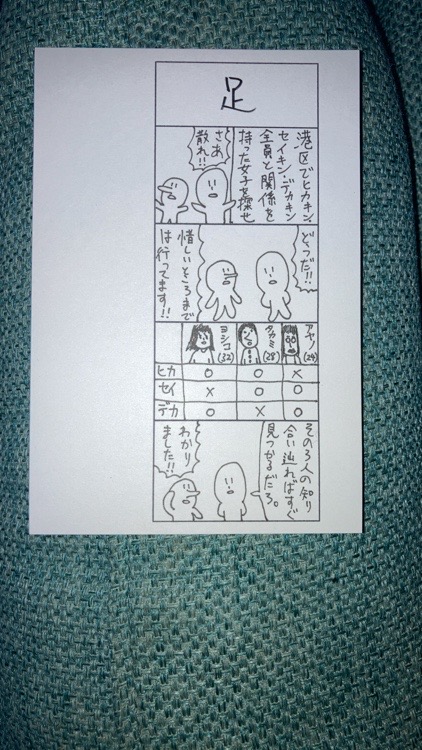 足
港区でヒカキン、
セイキン、デカキン
全員と関係を
持った女子を探せ
さあ
散れ!!
どうだ!!
惜しいところまで
は行ってます!!
ヨシコ(32)
タカミ(28)
アヤノ(24)
ヒカ ○ ○ ×
セイ × ○ ○
デカ ○ × ○
その3人の知り
合い辿ればすぐ
見つかるだろ。
わかり
ました!!